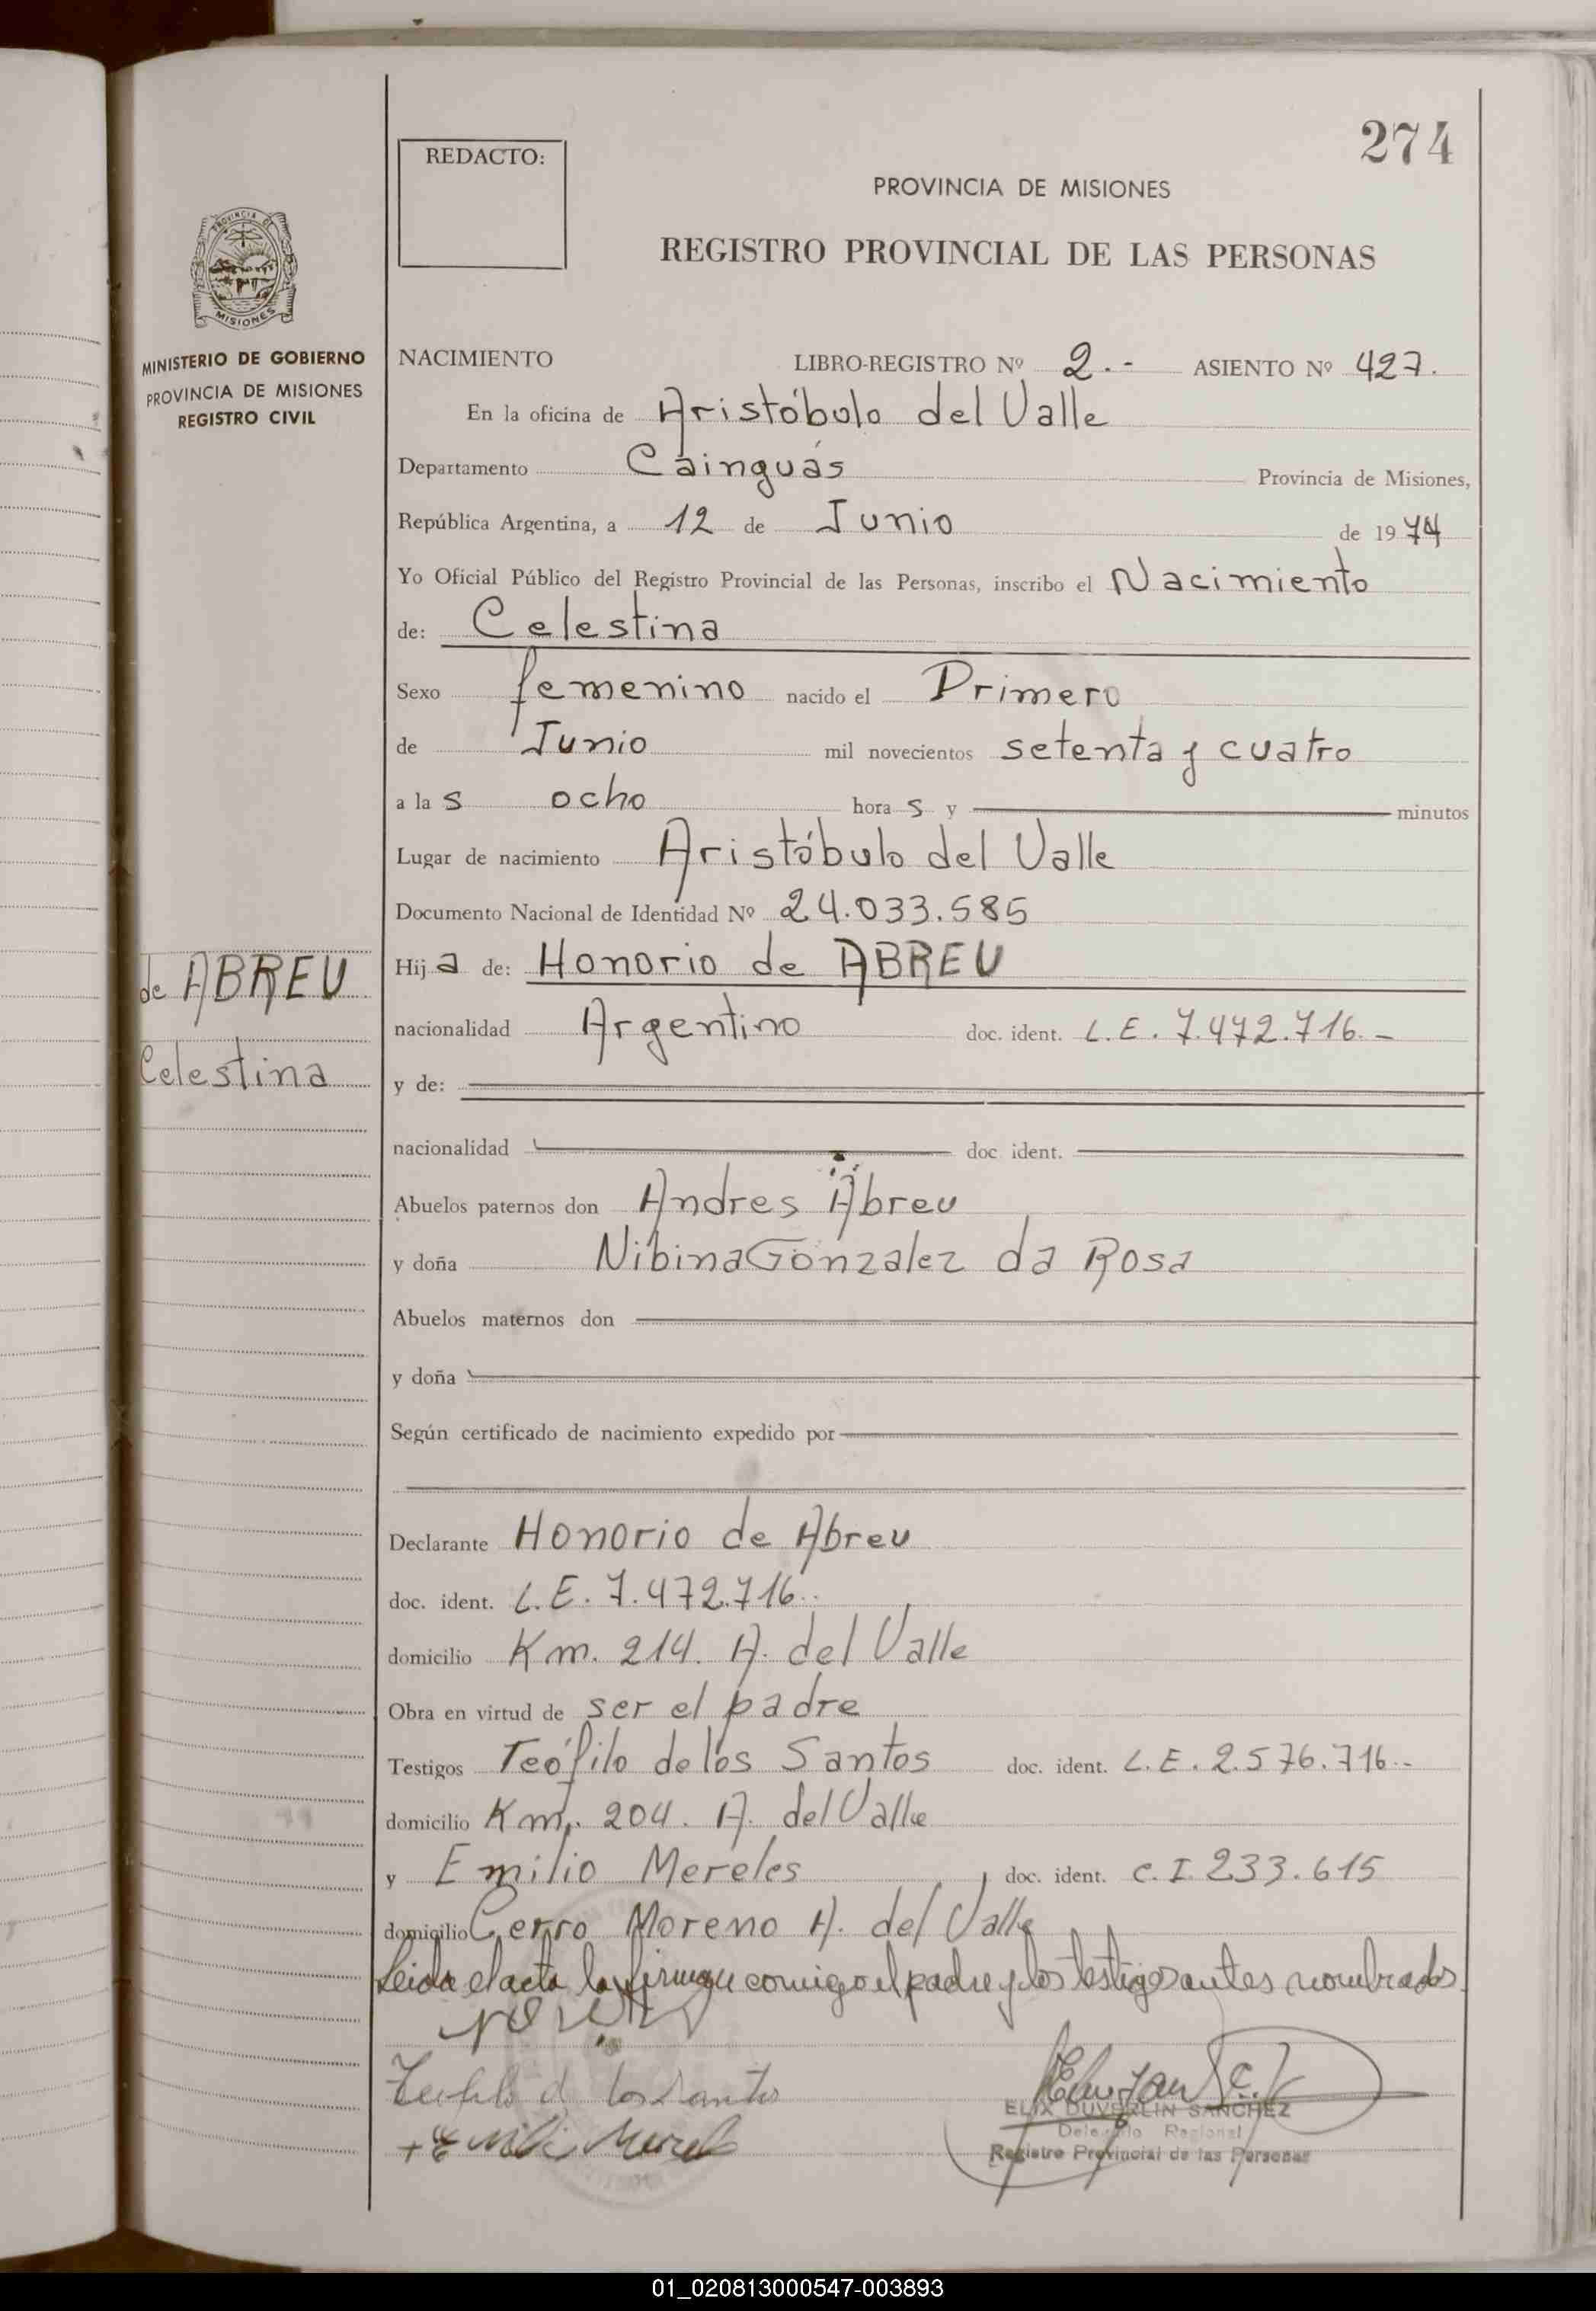 274
REDACTO:
PROVINCIA DE MISIONES
REGISTRO PROVINCIAL DE LAS PERSONAS
PROVINCIA DE
MISIONES
MINISTERIO DE GOBIERNO
PROVINCIA DE MISIONES
REGISTRO CIVIL
NACIMIENTO LIBRO-REGISTRO Nº 2.- ASIENTO Nº 427.
En la oficina de Aristóbulo del Valle
Departamento Cainguás Provincia de Misiones,
República Argentina, a 12 de Junio de 1974
Yo Oficial Público del Registro Provincial de las Personas, inscribo el Nacimiento
de: Celestina
Sexo femenino nacido el Primero
de Junio mil novecientos setenta y cuatro
a la s ocho hora s y minutos
Lugar de nacimiento Aristóbulo del Valle
Documento Nacional de Identidad Nº 24.033.585
de ABREU
Celestina
Hij a de: Honorio de ABREU
nacionalidad Argentino doc. ident. L.E. 7.472.716.-
y de:
nacionalidad doc. ident.
Abuelos paternos don Andres Abreu
y doña Nibina Gonzalez da Rosa
Abuelos maternos don
y doña
Según certificado de nacimiento expedido por
Declarante Honorio de Abreu
doc. ident. L.E. 7.472.716.
domicilio Km. 214. A. del Valle
Obra en virtud de ser el padre
Testigos Teófilo de los Santos doc. ident. L.E. 2.576.716.-
domicilio Km. 204. A. del Valle
y Emilio Mereles doc. ident. C.I. 233.615
domicilio Cerro Moreno A. del Valle
Leida el acta la firman conmigo el padre y los testigos antes nombrados.
ELIX DUVERLIN SANCHEZ
Delegado Regional
Registro Provincial de las Personas
01_020813000547-003893